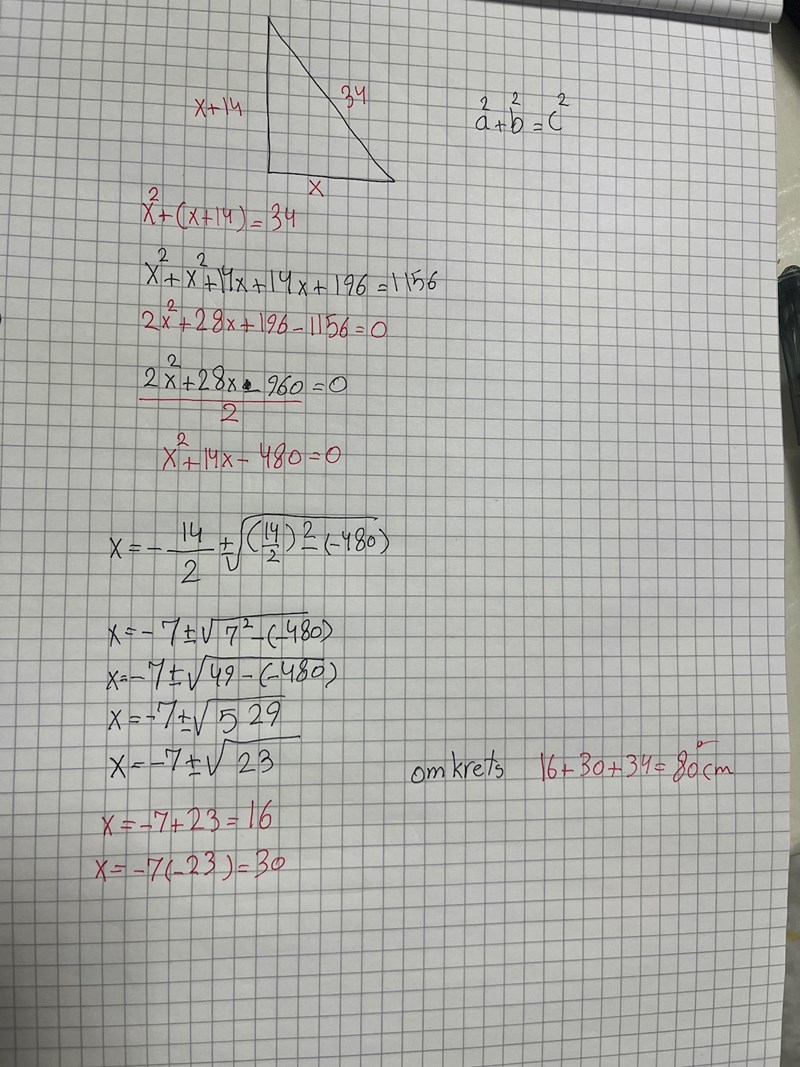 x+14
34
a²+b²=c²
x
x²+(x+14)=34
x²+x²+14x+14x+196=1156
2x²+28x+196-1156=0
2x²+28x-960=0
2
x²+14x-480=0
x=-14/2±√(14/2)²-(-480)
x=-7±√7²-(-480)
x=-7±√49-(-480)
x=-7±√529
x=-7±√23
omkrets 16+30+34=80cm
x=-7+23=16
x=-7(-23)=30